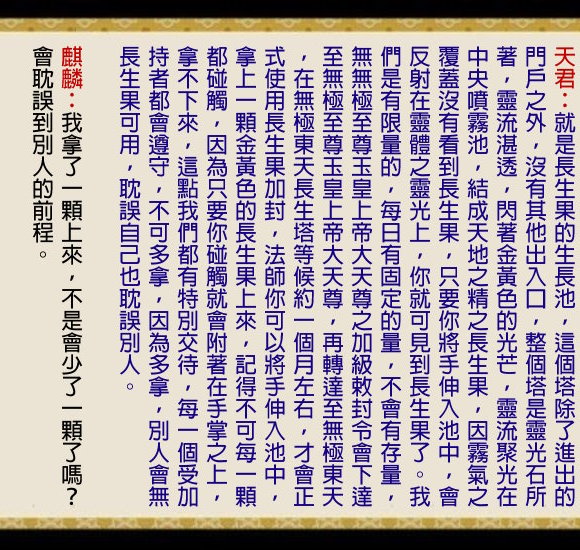 天君：就是長生果的生長池，這個塔除了進出的
門戶之外，沒有其他出入口，整個塔是靈光石所
著，靈流湛透，閃著金黃色的光芒，靈流聚光在
中央噴霧池，結成天地之精之長生果，因霧氣之
覆蓋沒有看到長生果，只要你將手伸入池中，會
反射在靈體之靈光上，你就可見到長生果了。我
們是有限量的，每日有固定的量，不會有存量，
無無極至尊玉皇上帝大天尊之加級敕封令會下達
至無極至尊玉皇上帝大天尊，再轉達至無極東天
，在無極東天長生塔等候約一個月左右，才會正
式使用長生果加封，法師你可以將手伸入池中，
拿上一顆金黃色的長生果上來，記得不可每一顆
都碰觸，因為只要你碰觸就會附著在手掌之上，
拿不下來，這點我們都有特別交待，每一個受加
持者都會遵守，不可多拿，因為多拿，別人會無
長生果可用，耽誤自己也耽誤別人。
麒麟：我拿了一顆上來，不是會少了一顆了嗎？
會耽誤到別人的前程。